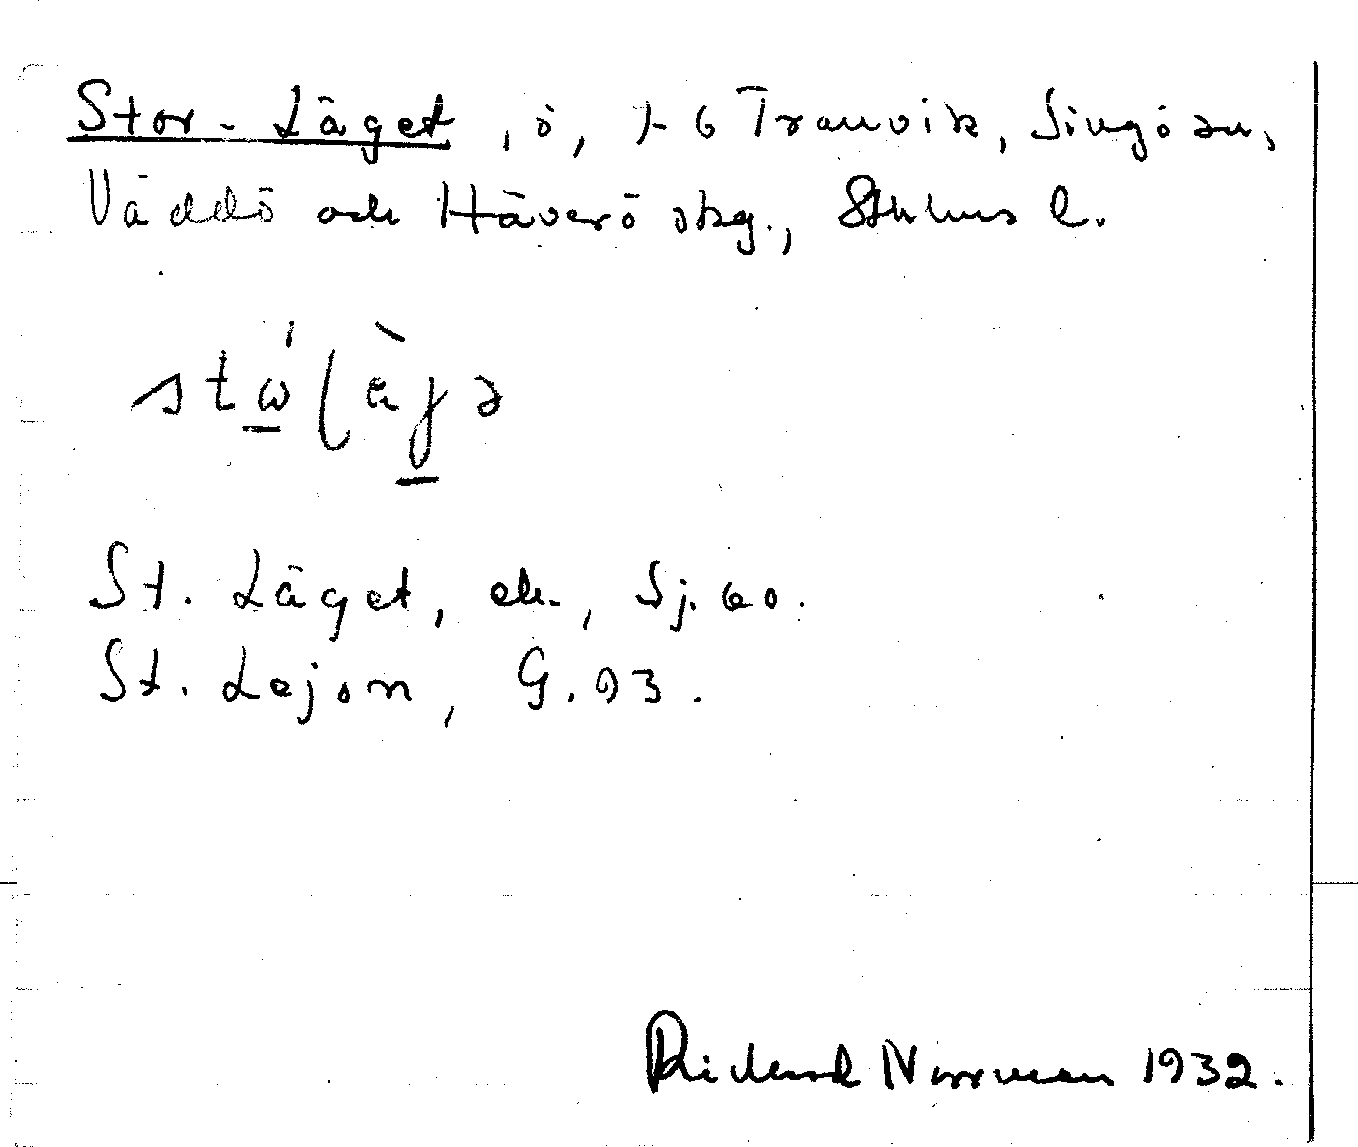 Stor-Läget, ö, 1-6 Tranvik, Singö sn,
Väddö och Häverö skg., Sthlms l.
St. Läget, ek., Sj. 60.
St. Lejon, G. 93.
Rickard Norrman 1932.